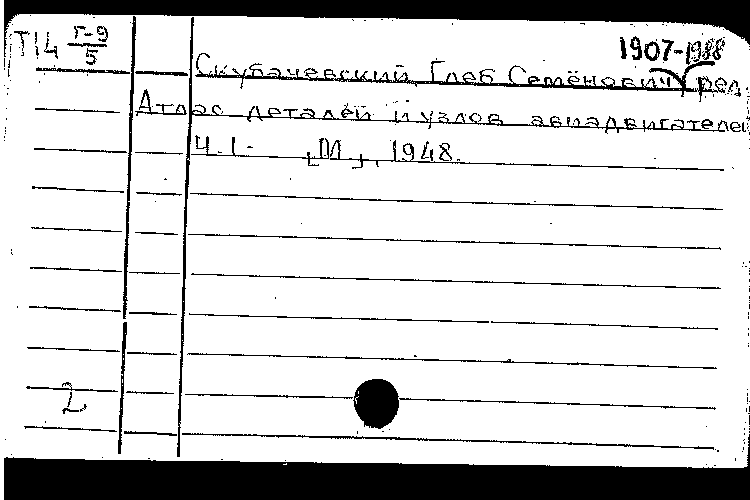 Т14 Г-9
5
1907-1988
Скубачевский, Глеб Семёнович, ред.
Атлас деталей и узлов авиадвигателей
Ч.I. [М.], 1948.
2